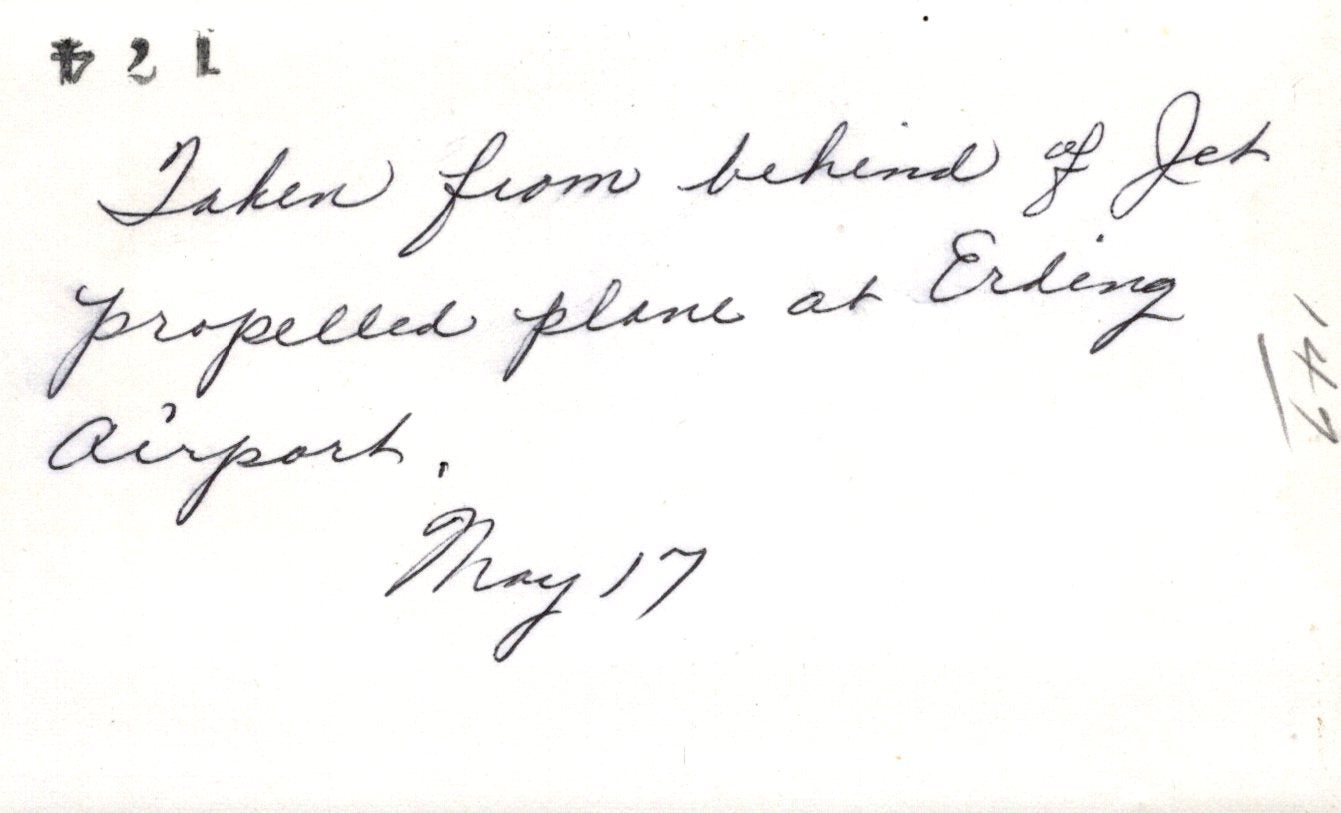 421
Taken from behind of Jet
propelled plane at Erding
Airport.
May 17
149